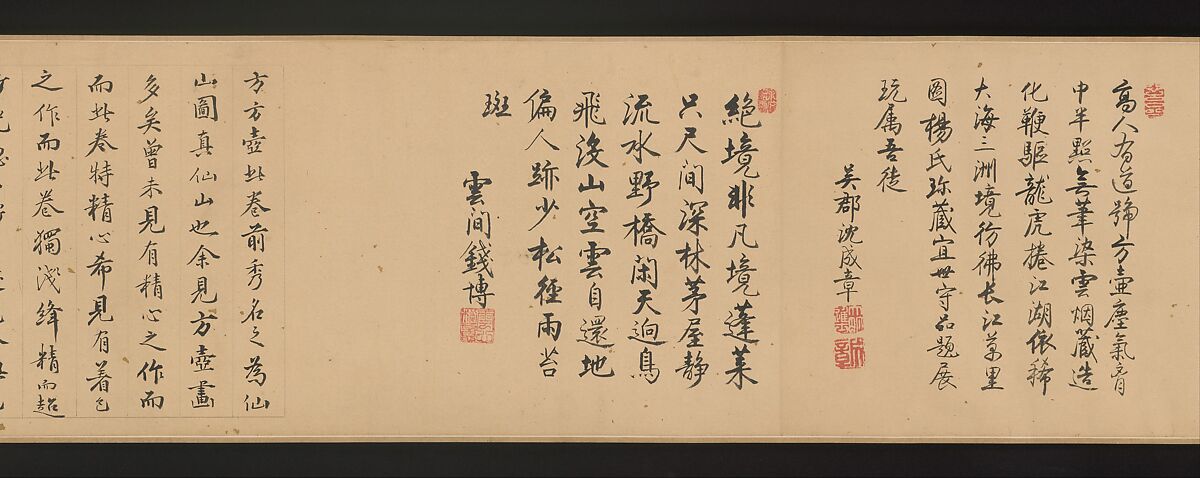 高人有道號方壺塵氣胷
中半點無筆染雲烟藏造
化鞭驅龍虎捲江湖依稀
大海三洲境彷彿長江萬里
圖楊氏珎藏宜世守品題展
玩属吾徒
吳郡沈成章
絕境非凡境蓬萊
只尺間深林茅屋靜
流水野橋閑天迥鳥
飛沒山空雲自還地
偏人跡少松徑雨苔
斑
雲間錢博
方方壺此卷前秀名之為仙
山圖真仙山也余見方壺畫
多矣曾未見有精心之作而
而此卷特精心希見有著色
之作而此卷獨淺絳精而超